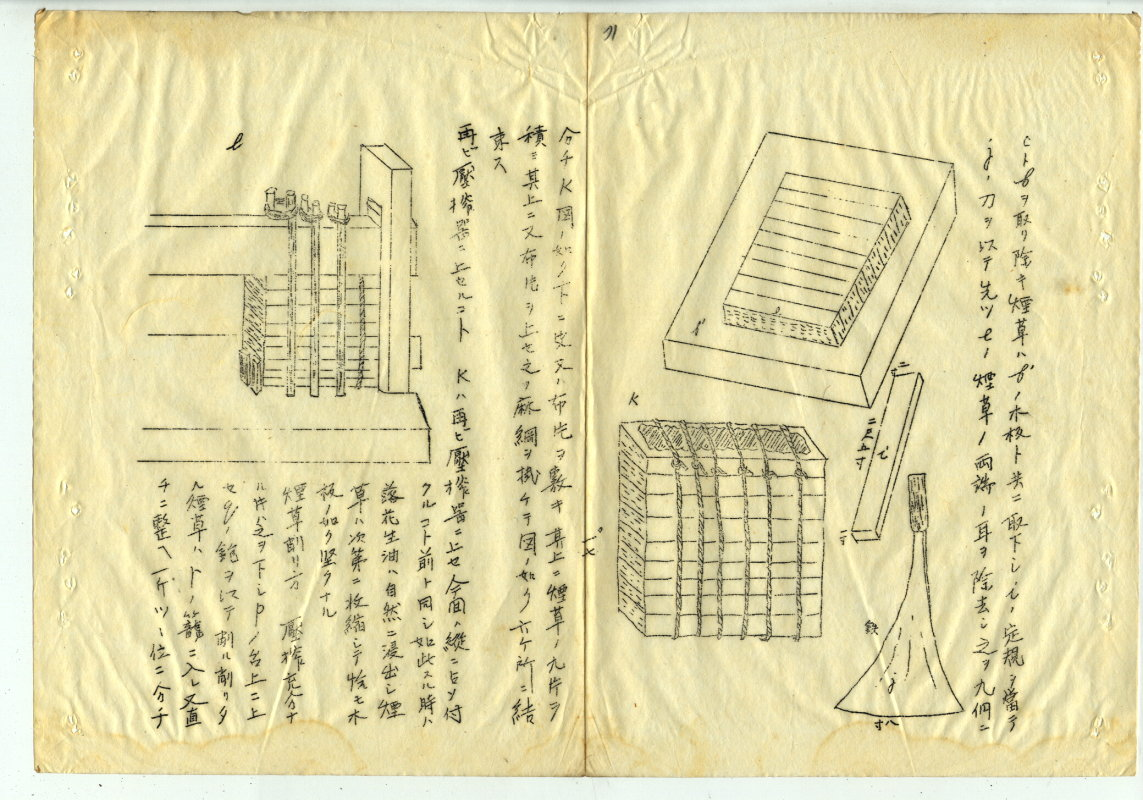 cトbヲ取リ除キ煙草ハb'ノ木板ト共ニ取下シiノ定規ヲ當テ
jノ刀ヲ以テ先ツeノ煙草ノ両端ノ耳ヲ除去シ之ヲ九個ニ
b'
二尺五寸
i
K
鉄
j
八寸
分チK図ノ如ク下ニ皮又ハ布片ヲ敷キ其上ニ煙草ノ九片ヲ
積ミ其上ニ又布片ヲ上セ之ヲ麻縄ヲ掛ケテ図ノ如ク六ケ所ニ結
束ス
再ビ壓搾器ニ上セルコト Kハ再ヒ壓搾器ニ上セ今回ハ縦ニ占ツ付
クルコト前ト同シ如此スル時ハ
落花生油ハ自然ニ浸出シ煙
草ハ次第ニ收縮シテ恰モ木
板ノ如ク堅クナル
煙草削リ方 壓搾充分ナ
ル片ハ之ヲ下シPノ台上ニ上
セgノ鉋ヲ以テ削ル削リタ
ル煙草ハトノ籠ニ入レ又直
チニ整ヘ一斤ツヽ位ニ分チ
l